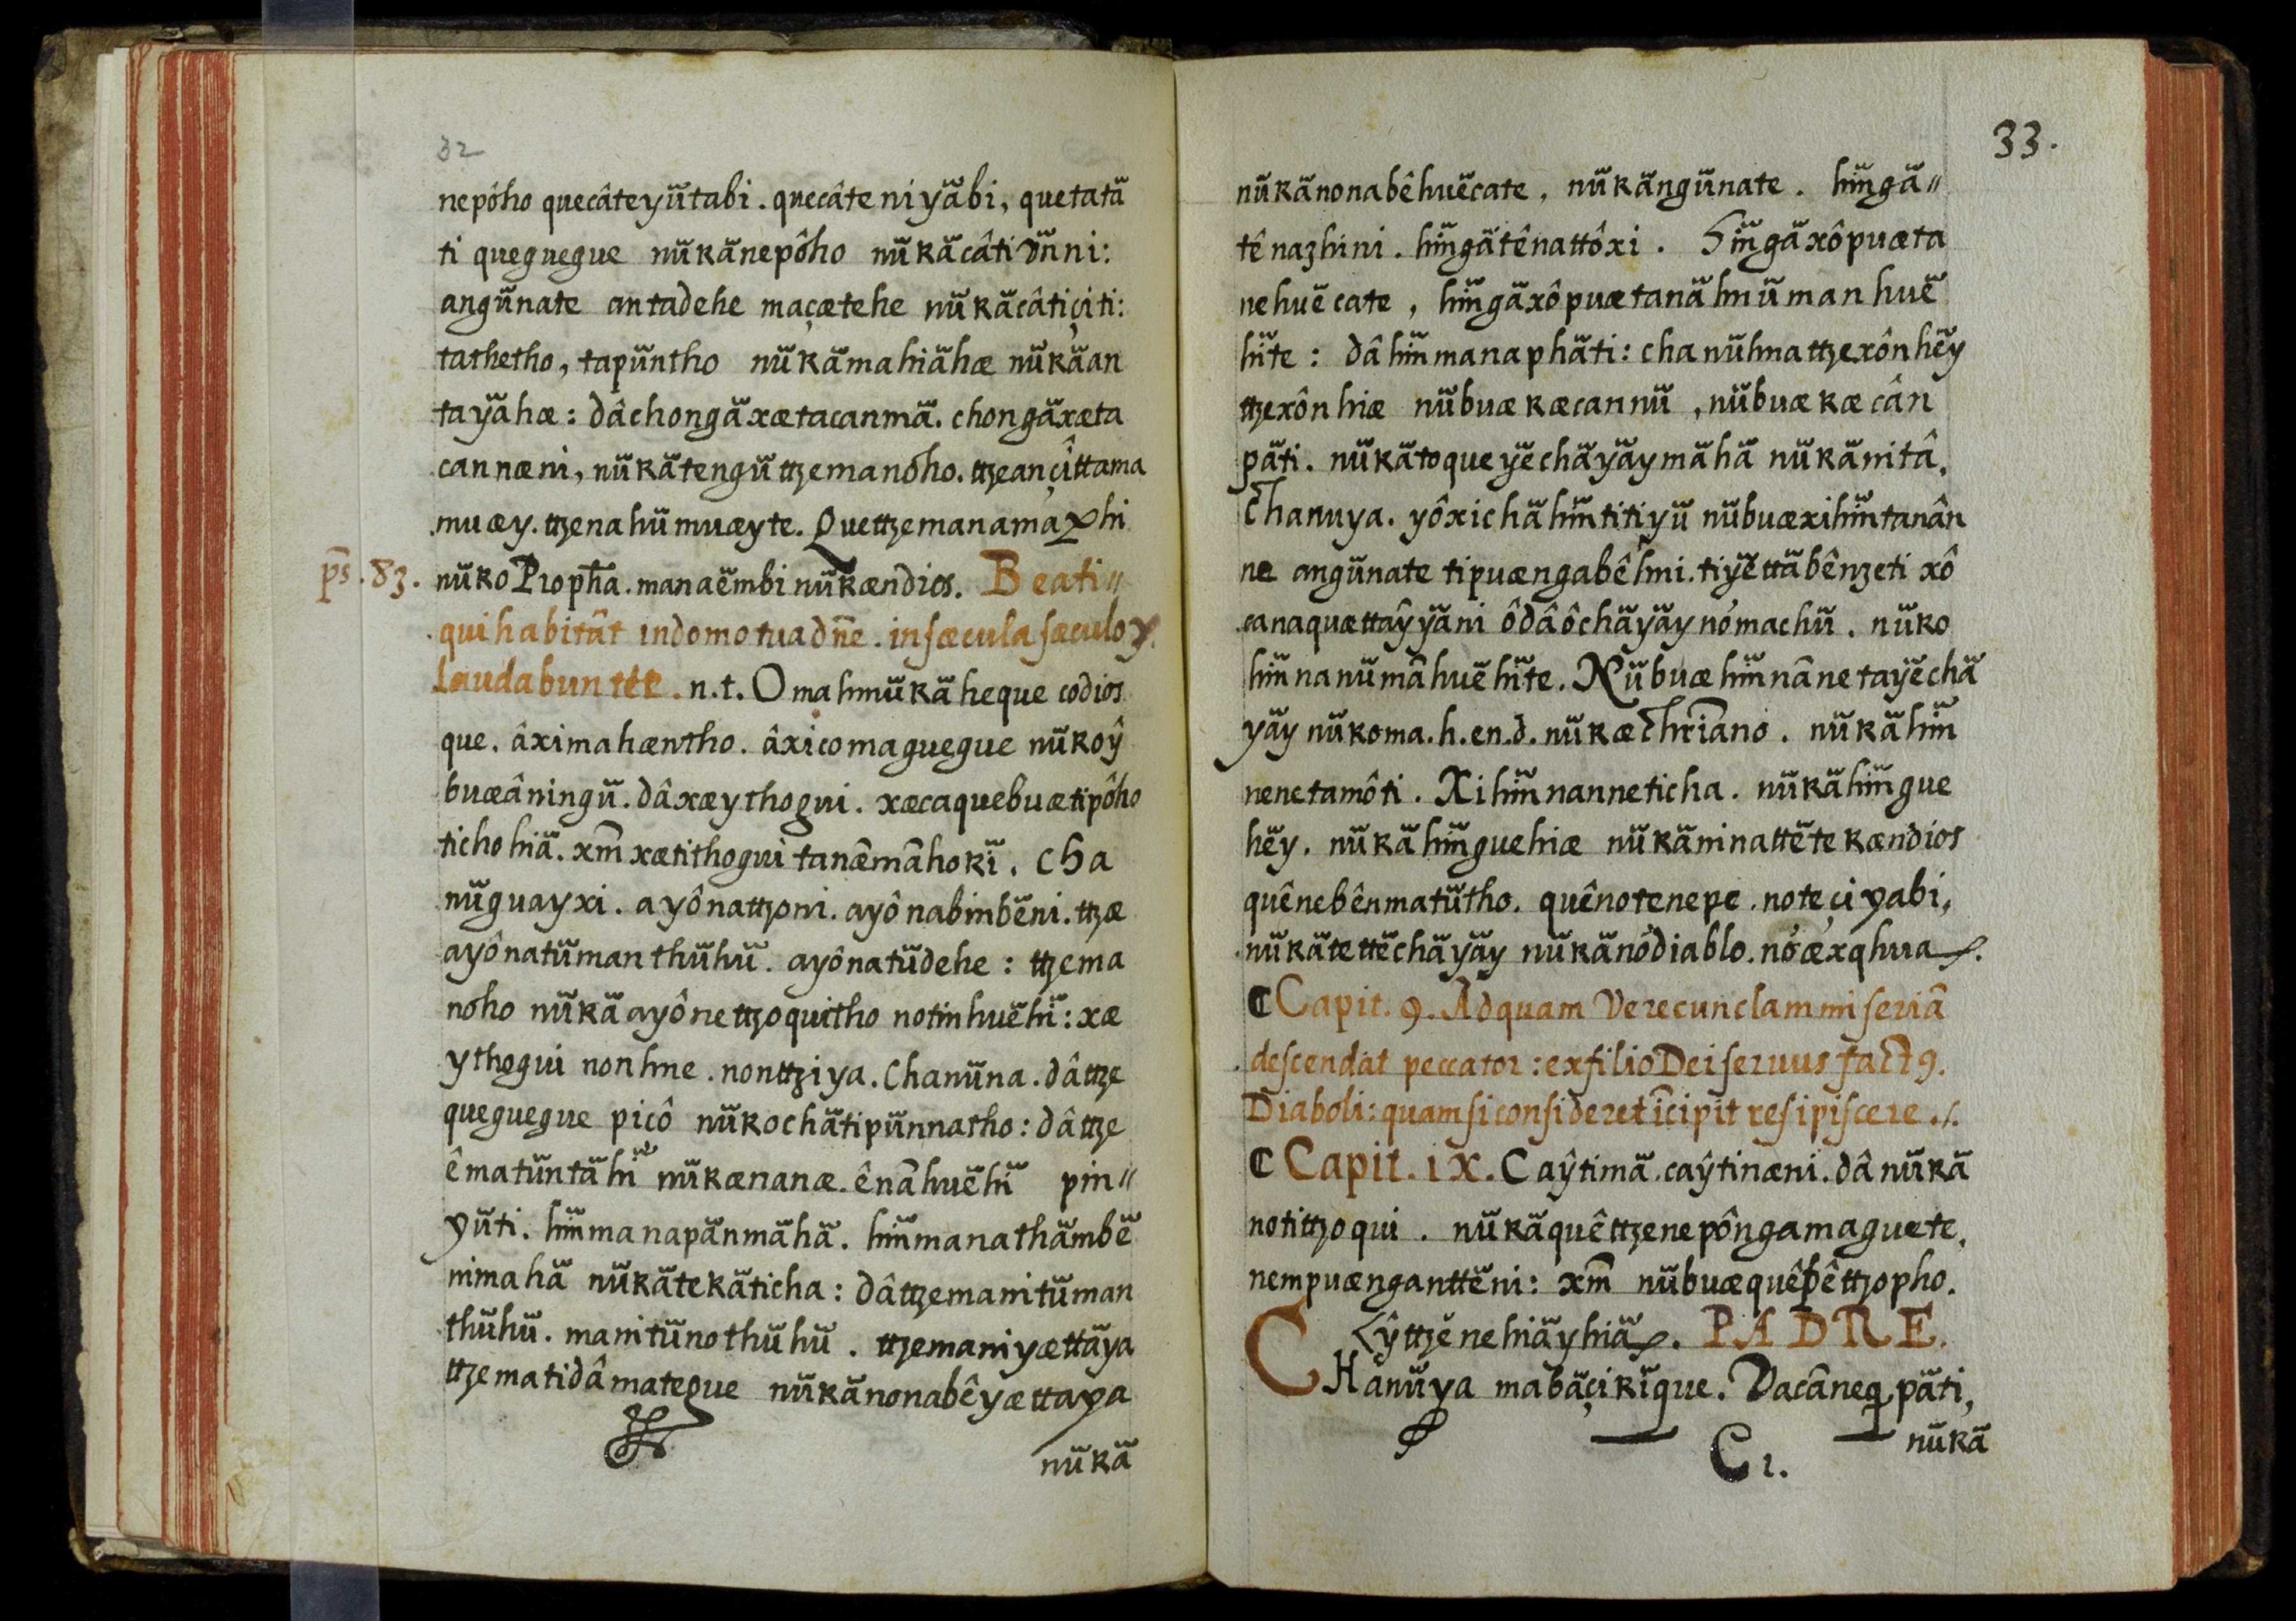 32
nepôho quecâteyütabi. quecâte niyäbi, quetatä
ti queguegue nükänepôho nükäcâti ünni:
angünate antadehe maçætehe nükäcâtiçiti:
tathetho, tapüntho nükämahiähæ nükäan
tayähæ: dâchongäxætacanmä. chongäxæta
cannæni, nükätengü ttzemanóho. ttzeançîttama
muæy. ttzenahümuæyte. Quettzemanamaxhi
ps. 83. nüko Propħa. manaëmbi nükændios. Beati"
qui habitât in domo tua dñe. in sæcula sæculoꝝ
laudabunt te. n.t. O mahmükä heque codios
que. âximahæntho. âxicomaguegue nükoŷ
buæâningü. dâxæythogui. xæcaquebuætipôho
tichohiä. xm̃ xætithogui tanæ̂mâhokï. cha
nüguayxi. ayônattzoni. ayônabinbëni. ttzæ
ayônatümanthühü. ayônatüdehe: ttzema
nóho nükä ayônettzoquitho notinhuëhï: xæ
ythogui nonhne. nonttziya. Chanüna. dâttze
queguegue picô nükochätipünnatho: dâttze
êmatüntähï nükænanæ. ênâhuëhï pin"
yüti. hïnmanapänmähä. hïnmanathämbë
nimahä nükätekäticha: dâttzemanitüman
thühü. manitünothühü. ttzemaniyættäya
ttzematidâmategue nükänonabêyættaya
nükä
33.
nükänonabêhuëcate, nükängünate. hïngä"
tênazhini. hïngätênattôxi. Hïngäxôpuæta
nehuëcate, hïngäxôpuætanähnümanhuë
hïte: dâhïnmanaphäti: chanühnattzexônhëy
ttzexônhiæ nübuækæcannü, nübuækæcân
päti. nükätoqueyëchäyäymähä nükänitâ.
Chanuya. yôxichähïntitiyü nübuæxihïntanân
ne angünate tipuængabêhmi. tiyëttäbênzeti xô
canaquættaŷyäni ôdâôchäyäynómachü. nüko
hïnnanümâhuëhïte. Nübuæhïnnânetayëchä
yäy nükoma. h. en. d. nükæChriano. nükähïn
nenetamôti. Xihïnnanneticha. nükähïngue
hëy. nükähïnguehiæ nükäninattëtekændios
quênebênmatütho. quênotenepe. noteçiyabi,
nükätettëchäyäy nükänódiablo. nóæ̂xqhua.
Capit. 9. Ad quam verecundam miseriâ
descendat peccator: ex filio Dei seruus fact9.
Diaboli: quam si consideret ĩcipit resipiscere./.
Capit. IX. Caŷtimä. caŷtinæni. dânükä
notittzoqui. nükäquêttzenepôngamaguete,
nempuængantтëni: xm̃ nübuæquêpêttzopho.
Cŷttzënehiäyhiä. PADRE.
CHanüya mabäçikïque. Dacâneq päti,
nükä
C1.